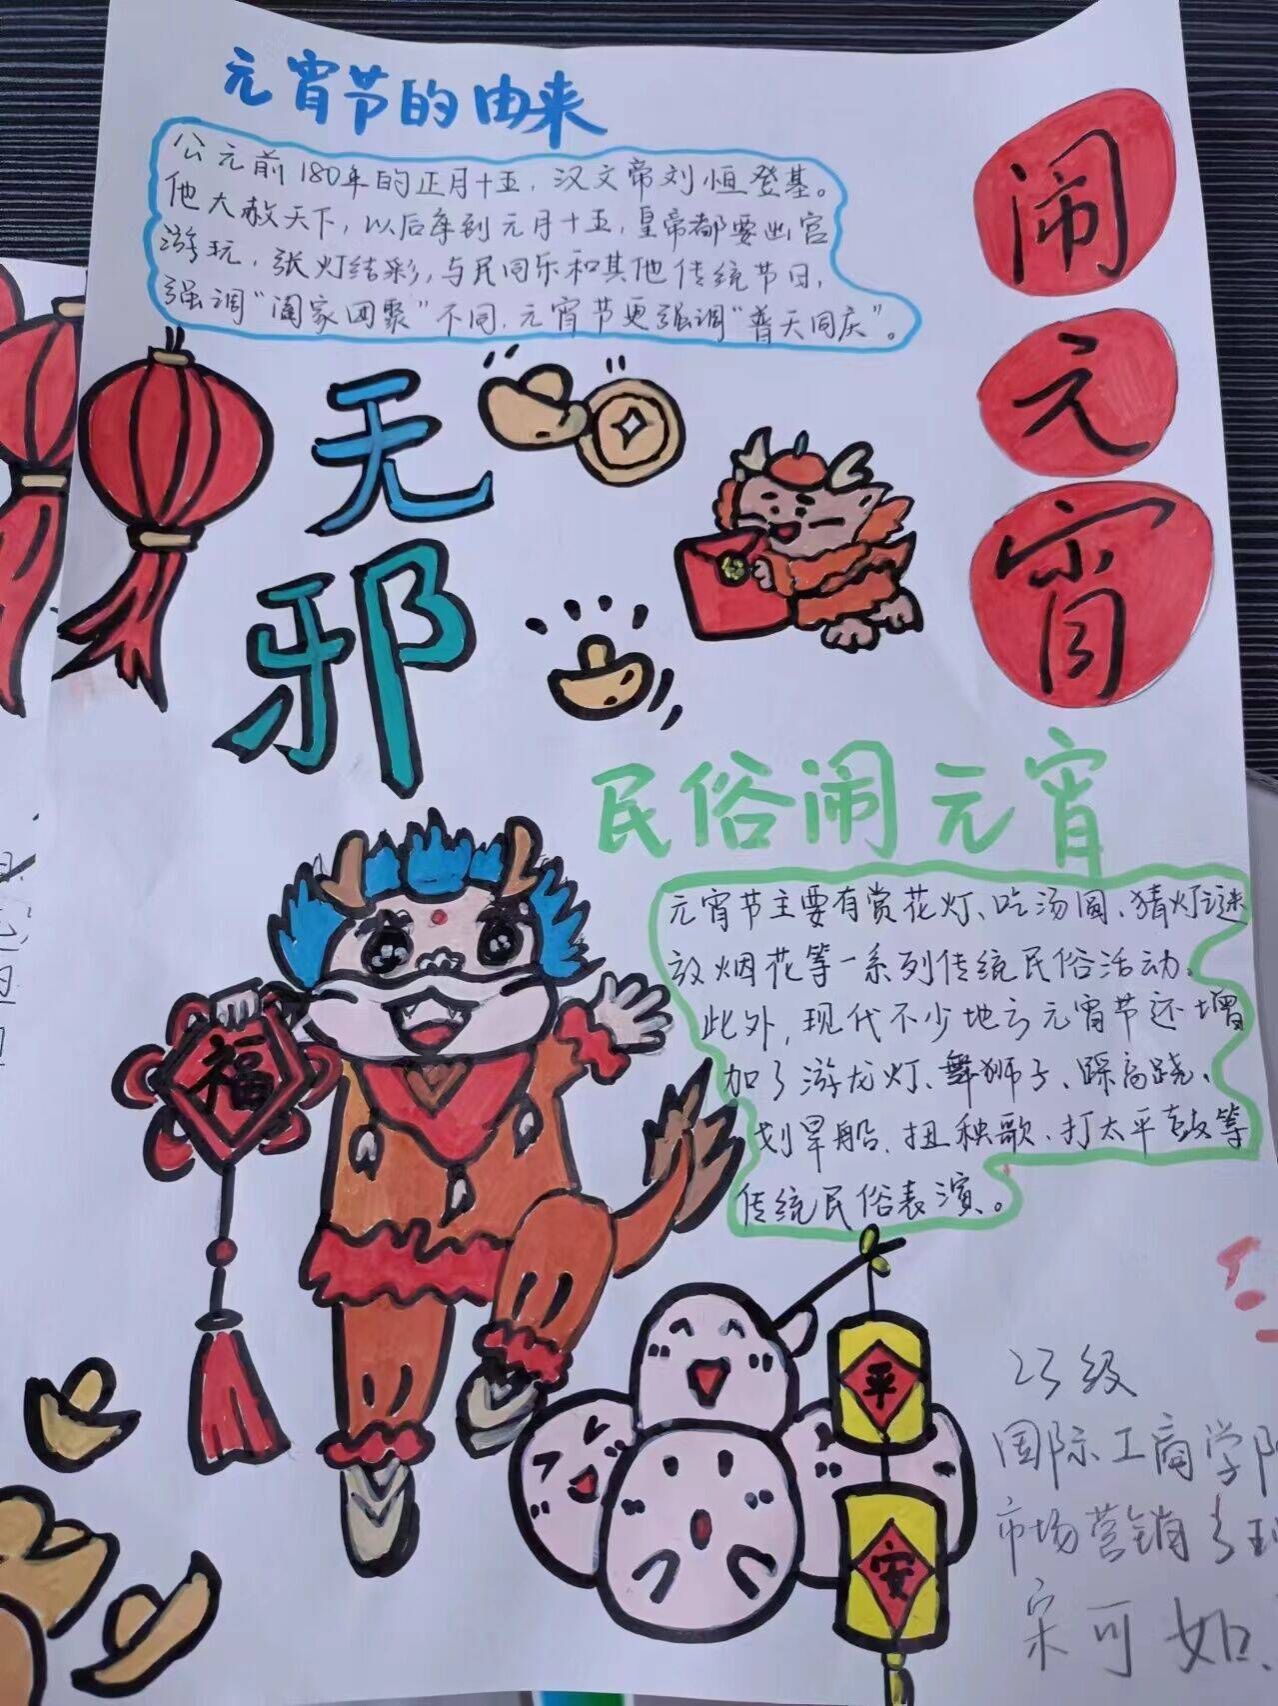 元宵节的由来
公元前180年的正月十五，汉文帝刘恒登基。
他大赦天下，以后每到元月十五，皇帝都要出宫
游玩，张灯结彩，与民同乐和其他传统节日，
强调“阖家团聚”不同，元宵节更强调“普天同庆”。
闹
元
宵
无
邪
民俗闹元宵
元宵节主要有赏花灯、吃汤圆、猜灯谜
放烟花等一系列传统民俗活动。
此外，现代不少地方元宵节还增
加了游龙灯、舞狮子、踩高跷、
划旱船、扭秧歌、打太平鼓等
传统民俗表演。
福
平
安
23级
国际工商学院
市场营销
宋可如